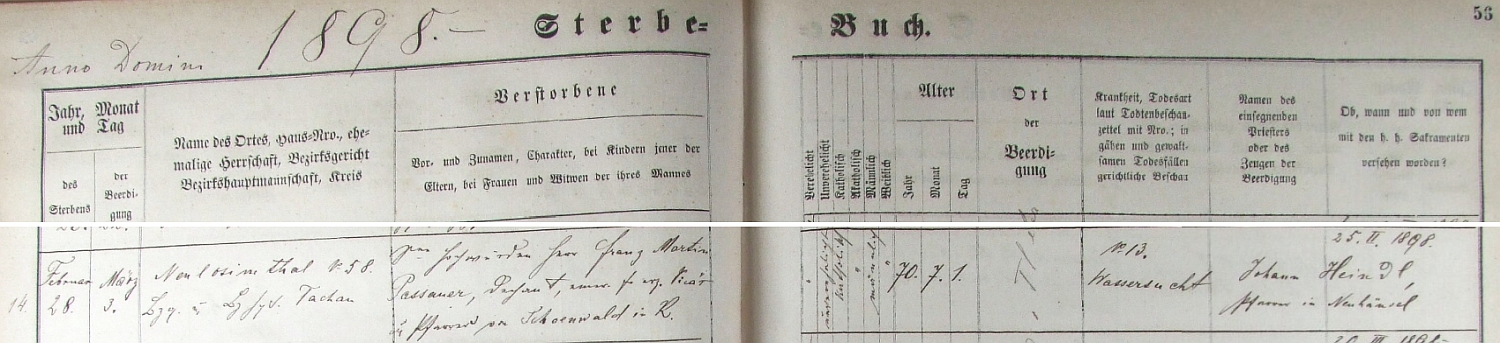 Anno Domini 1898.–
Sterbe=
Buch.
56
Jahr, Monat
und Tag
des
Sterbens
der
Beerdi-
gung
Name des Ortes, Haus-Nro., ehe-
malige Herrschaft, Bezirksgericht
Bezirkshauptmannschaft, Kreis
Verstorbene
Vor- und Zunamen, Charakter, bei Kindern jener der
Eltern, bei Frauen und Witwen der ihres Mannes
Verehelicht
Unverehelicht
Katholisch
Akatholisch
Männlich
Weiblich
Alter
Jahr
Monat
Tag
Ort
der
Beerdi-
gung
Krankheit, Todesart
laut Todtenbeschau-
zettel mit Nro.; in
gähen und gewalt-
samen Todesfällen
gerichtliche Beschau
Namen des
einsegnenden
Priesters
oder des
Zeugen der
Beerdigung
Ob, wann und von wem
mit den h. h. Sakramenten
versehen worden?
14.
Februar
28.
März
3.
Neulosimthal N. 58.
Tachau
Hochwürden Herr Franz Martin
Passauer, Dechant, emer. f. erz. Vicär
u. Pfarrer von Schoenwald in R.
unverehelicht
katholisch
männlich
70. 7. 1.
N. 13.
Wassersucht
25. II. 1898.
Johann Heindl,
Pfarrer in Neuhäusel